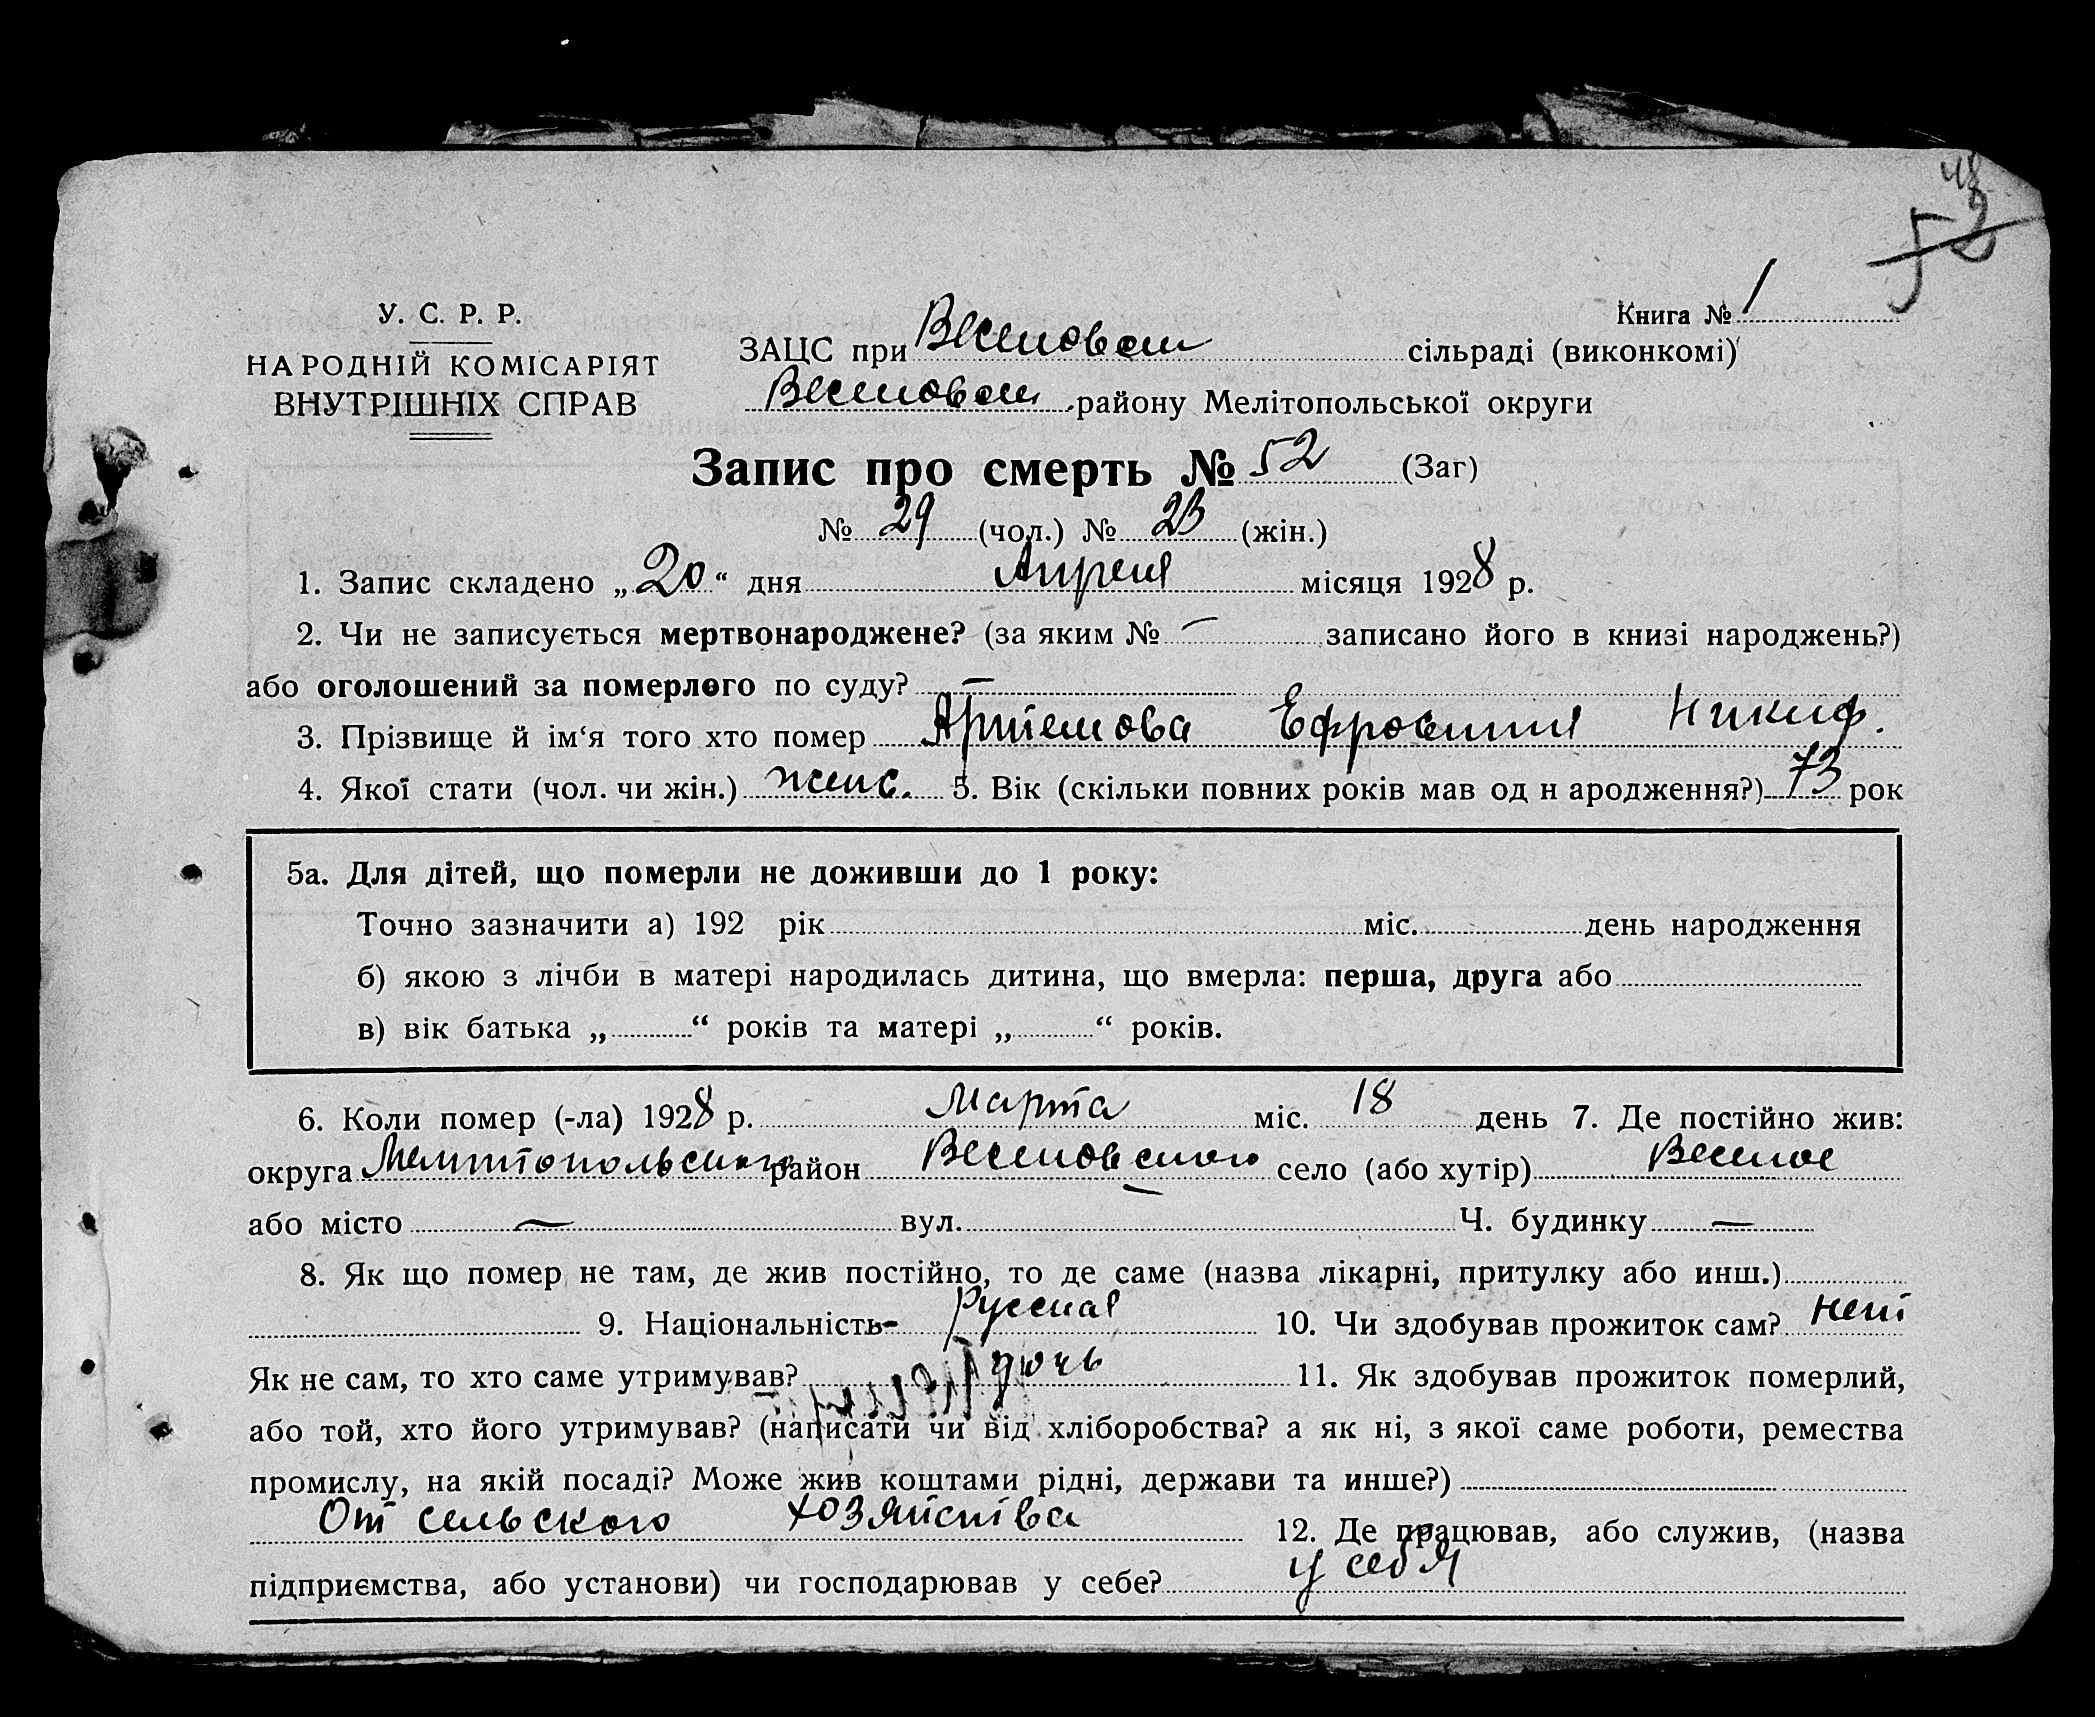 48
52
У. С. Р. Р.
НАРОДНІЙ КОМІСАРІЯТ
ВНУТРІШНІХ СПРАВ
Книга № 1
ЗАЦС при Веселовском сільраді (виконкомі)
Веселовском району Мелітопольської округи
Запис про смерть № 52 (Заг)
№ 29 (чол.) № 23 (жін.)
1. Запис складено „20“ дня Апреля місяця 1928 р.
2. Чи не записується мертвонароджене? (за яким № — записано його в книзі народжень?)
або оголошений за померлого по суду? —
3. Прізвище й ім‘я того хто помер Артемова Ефросиния Никиф.
4. Якої стати (чол. чи жін.) женс. 5. Вік (скільки повних років мав од н ародження?) 73 рок
5а. Для дітей, що померли не доживши до 1 року:
Точно зазначити а) 192 рік міс. день народження
б) якою з лічби в матері народилась дитина, що вмерла: перша, друга або
в) вік батька „ “ років та матері „ “ років.
6. Коли помер (-ла) 1928 р. Марта міс. 18 день 7. Де постійно жив:
округа Мелитопольского район Веселовского село (або хутір) Веселое
або місто — вул. — Ч. будинку —
8. Як що помер не там, де жив постійно, то де саме (назва лікарні, притулку або инш.)
9. Національність- Русская 10. Чи здобував прожиток сам? нет
Як не сам, то хто саме утримував? дочь 11. Як здобував прожиток померлий,
або той, хто його утримував? (написати чи від хліборобства? а як ні, з якої саме роботи, ремества
промислу, на якій посаді? Може жив коштами рідні, держави та инше?)
От сельского хозяйства 12. Де працював, або служив, (назва
підприємства, або установи) чи господарював у себе? у себя